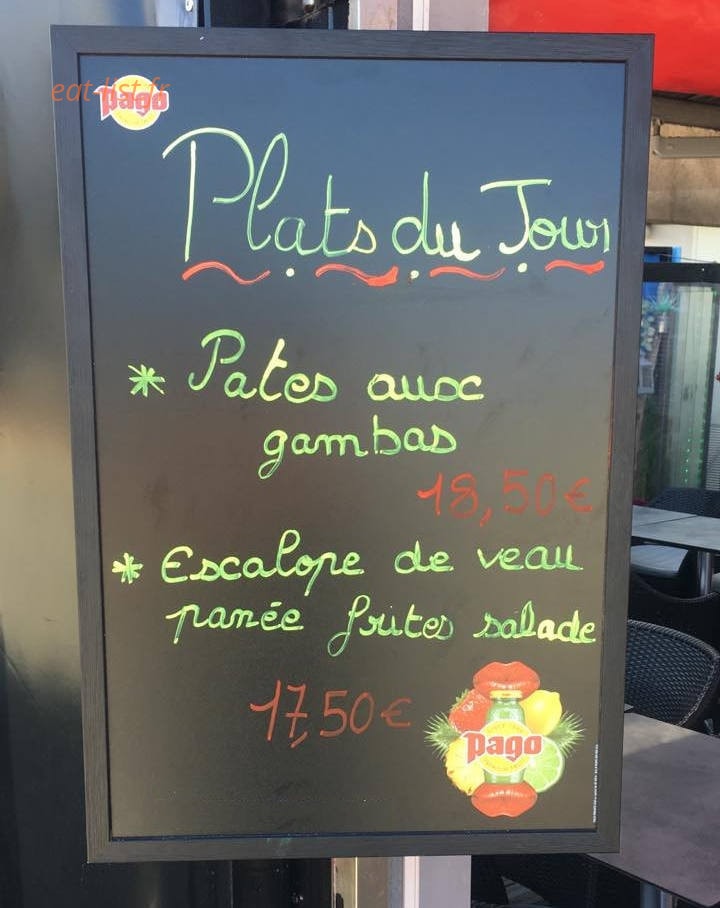 eat-list.fr
pago
Plats du Jour
* Pates aux
gambas
18,50€
* Escalope de veau
panée frites salade
17,50€
pago